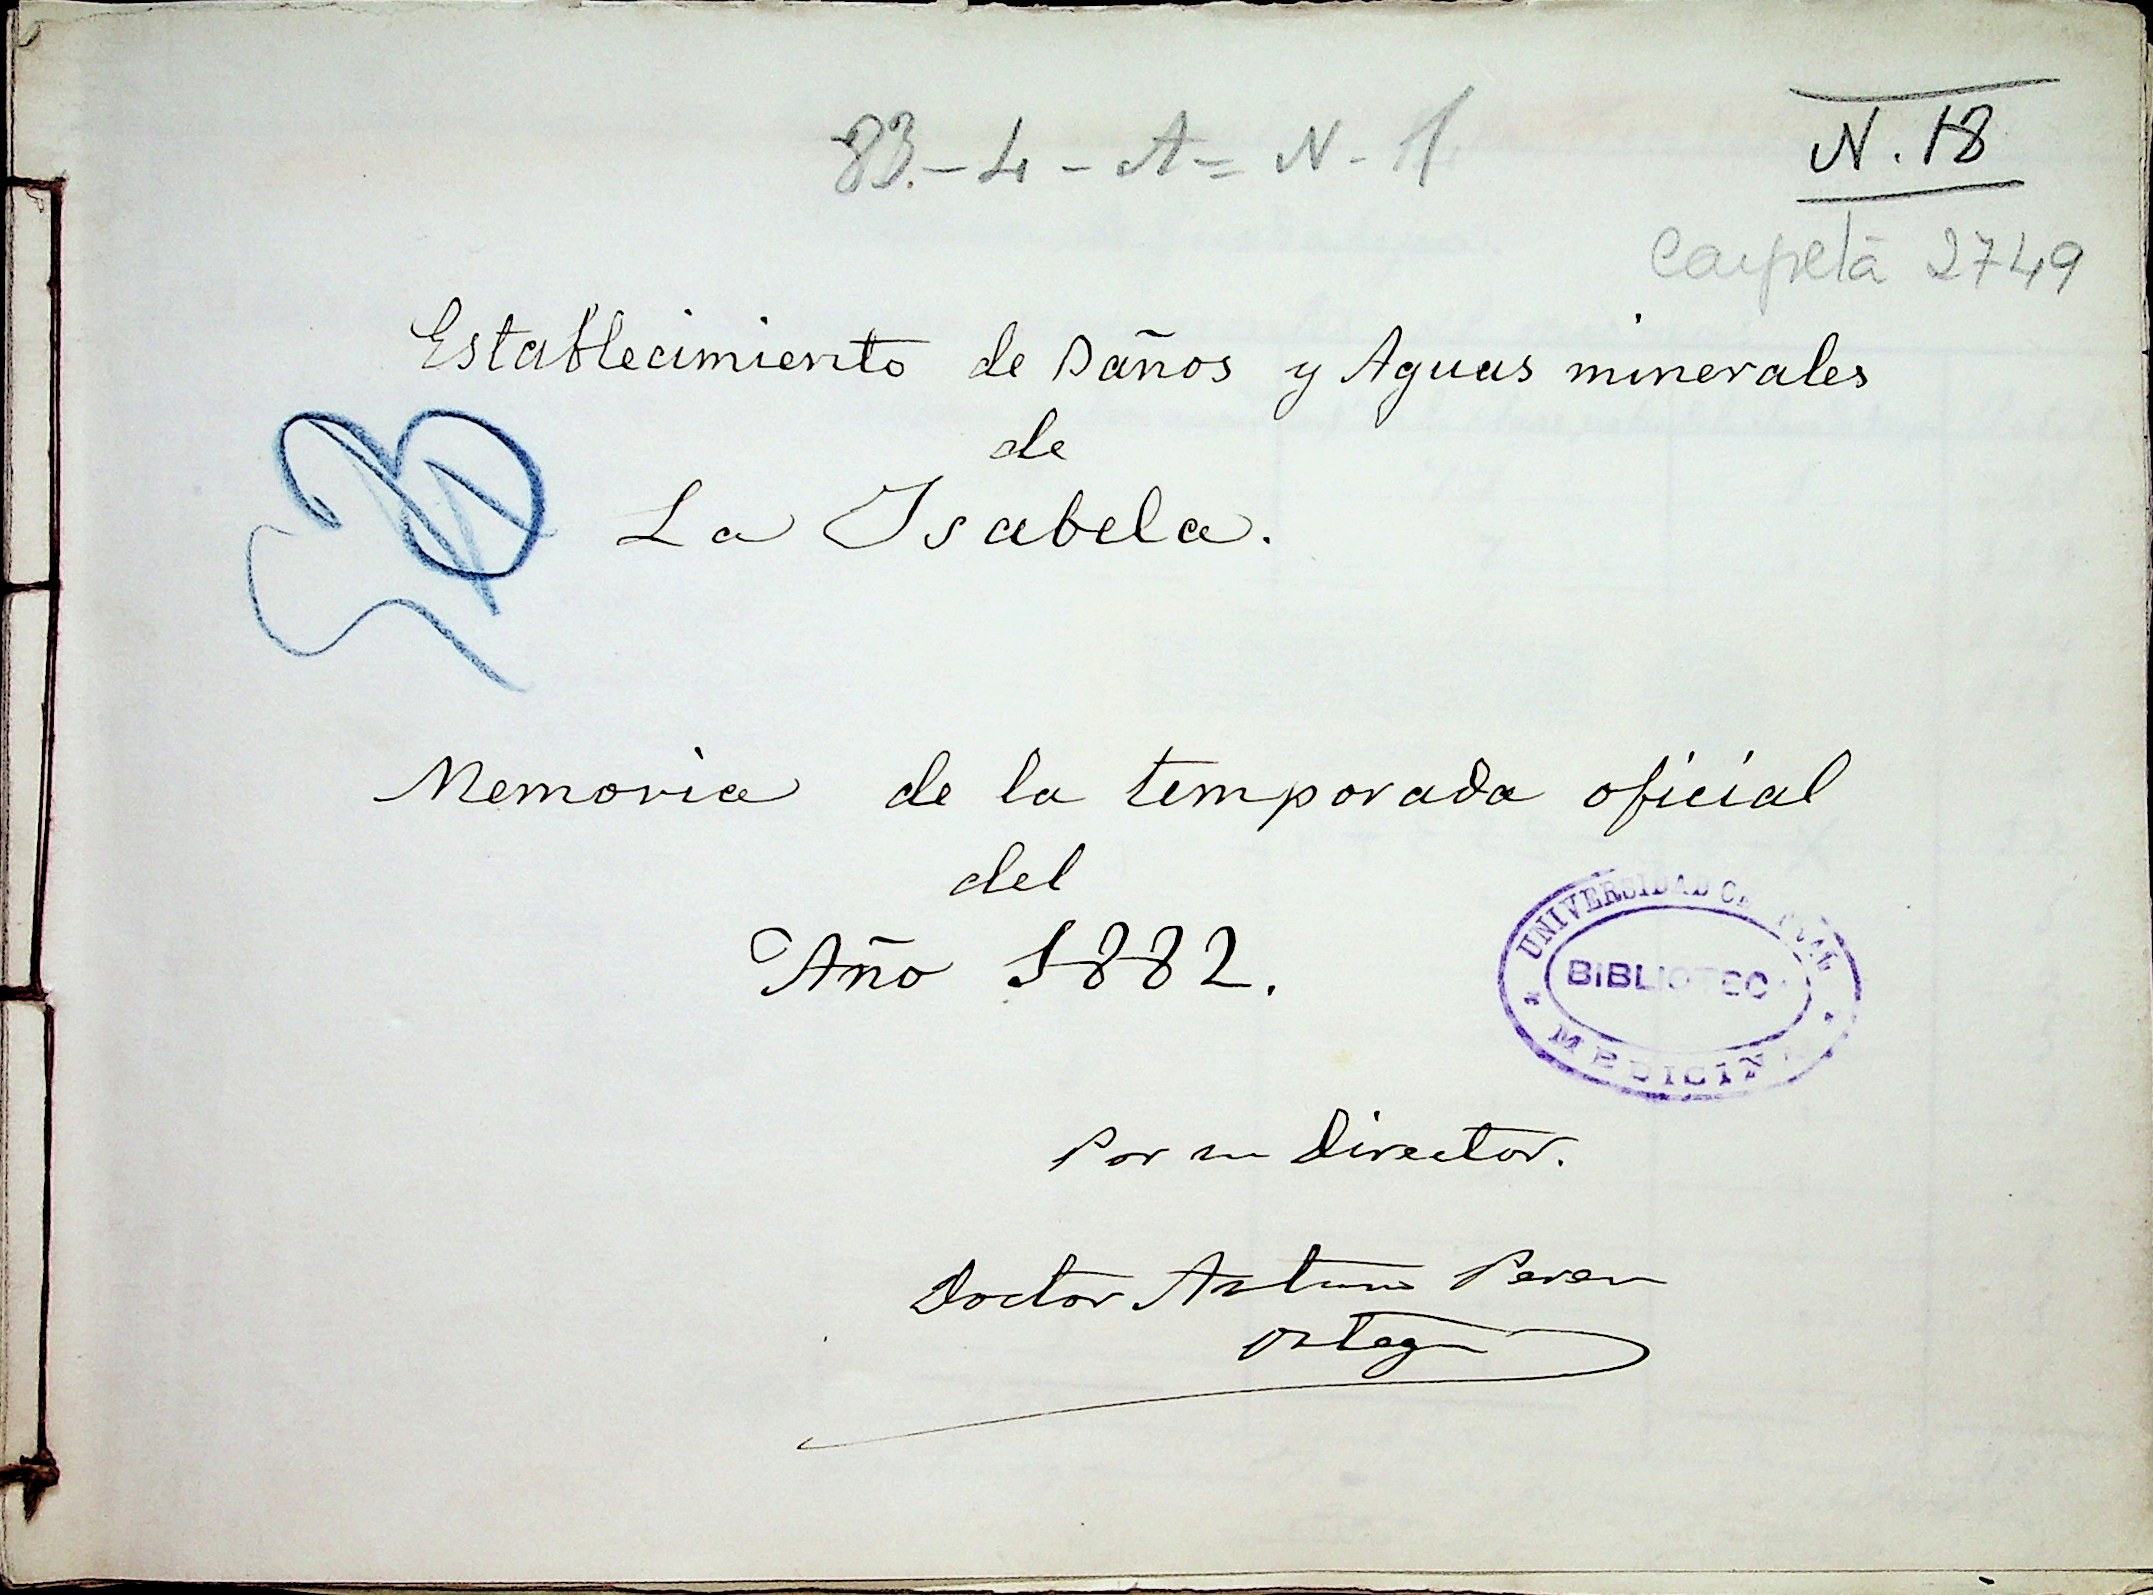 83.-4-A=N-1
N.18
Carpeta 2749
Establecimiento de Baños y Aguas minerales
de
La Isabela.
Memoria de la temporada oficial
del
Año 1882.
UNIVERSIDAD CENTRAL
BIBLIOTECA
MEDICINA
Por su Director.
Doctor Arturo Perez
Ortega